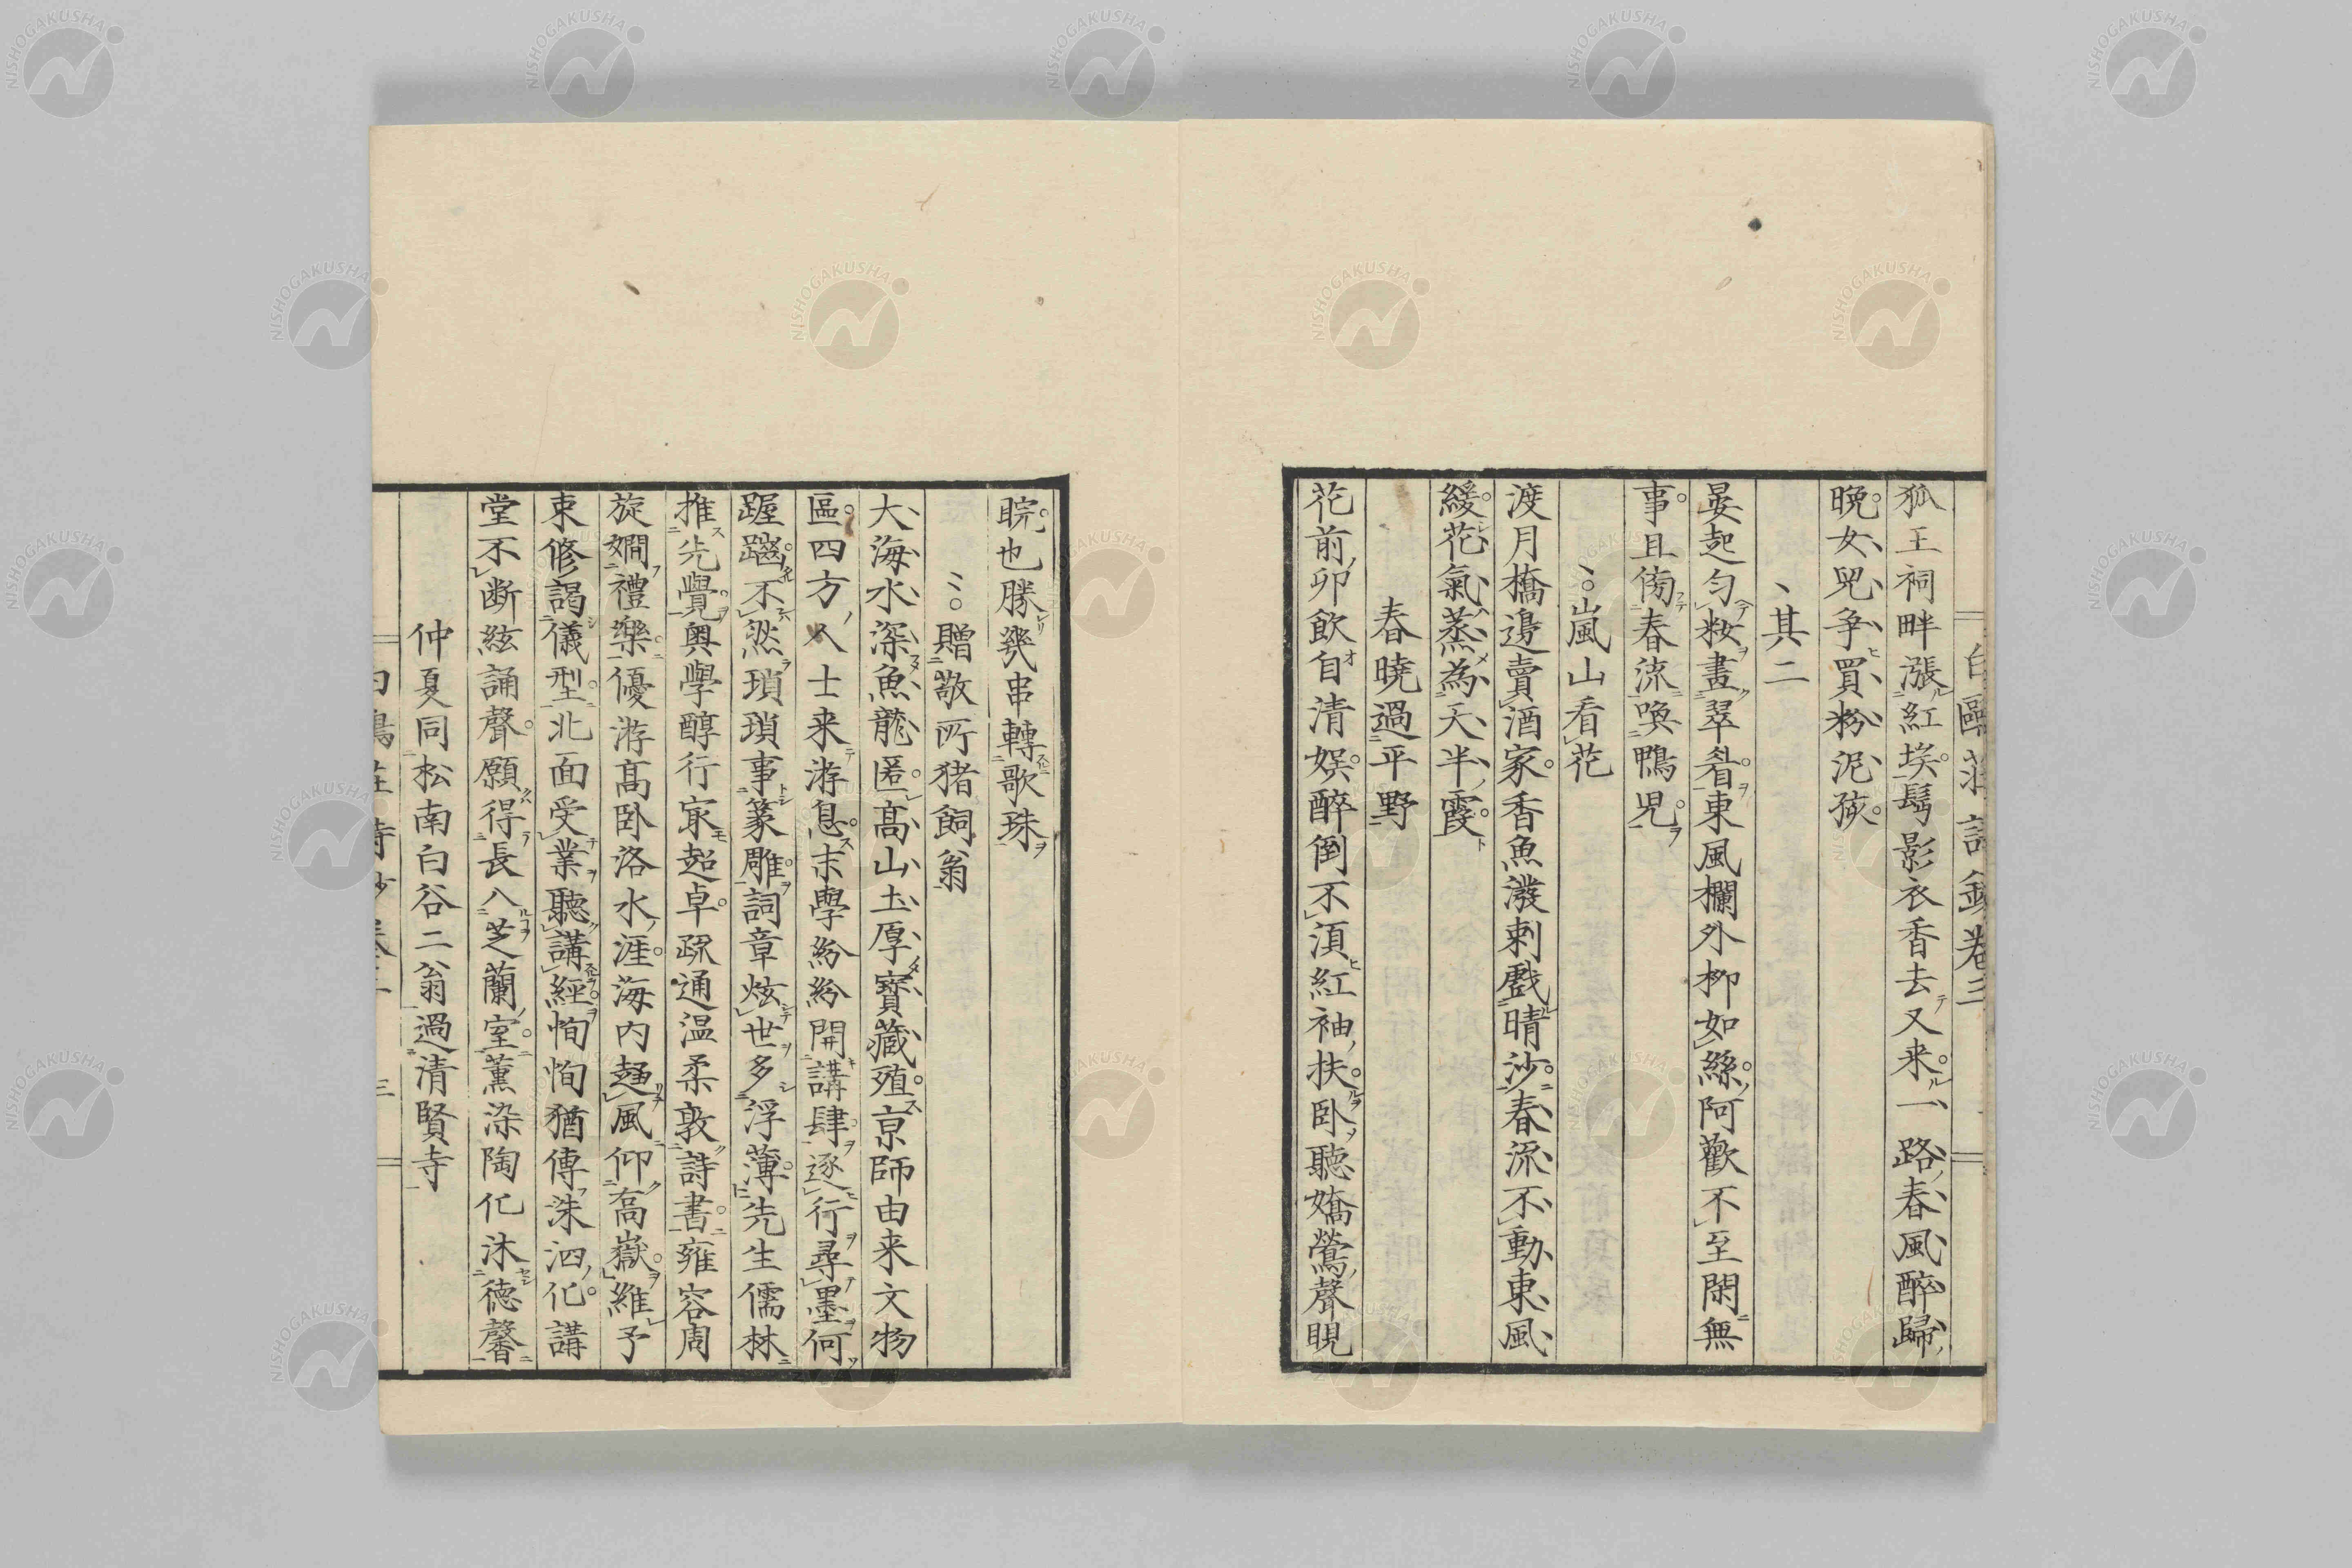 白鷗莊詩鈔卷三
狐王祠畔漲紅埃鬂影衣香去又来一路春風醉歸
晩女兒争買粉泥孩
其二
晏起匀粧畫翠眉東風欄外柳如絲阿歡不至閑無
事且傍春流喚鴨児
嵐山看花
渡月橋邊賣酒家香魚潑剌戲晴沙春流不動東風
緩花氣蒸為天半霞
春曉過平野
花前卯飲自清娯醉倒不湏紅袖扶卧聽嬌鶯聲睍
睆也勝幾串轉歌珠
贈敬所猪飼翁
大海水深魚龍匿高山土厚寳藏殖京師由来文物
區四方人士来游息末學紛紛開講肆逐行尋墨何
踞齪不然瑣瑣事篆雕詞章炫世多浮薄先生儒林
推先覺奥學醇行最超卓疏通温柔敦詩書雍容周
旋嫺禮樂優游高卧洛水涯海内趨風仰高嶽維予
束修謁儀型北面受業聽講經恂恂猶傳洙泗化講
堂不断絃誦聲願得長入芝蘭室薫染陶化沐德馨
仲夏同松南白谷二翁過清賢寺
三